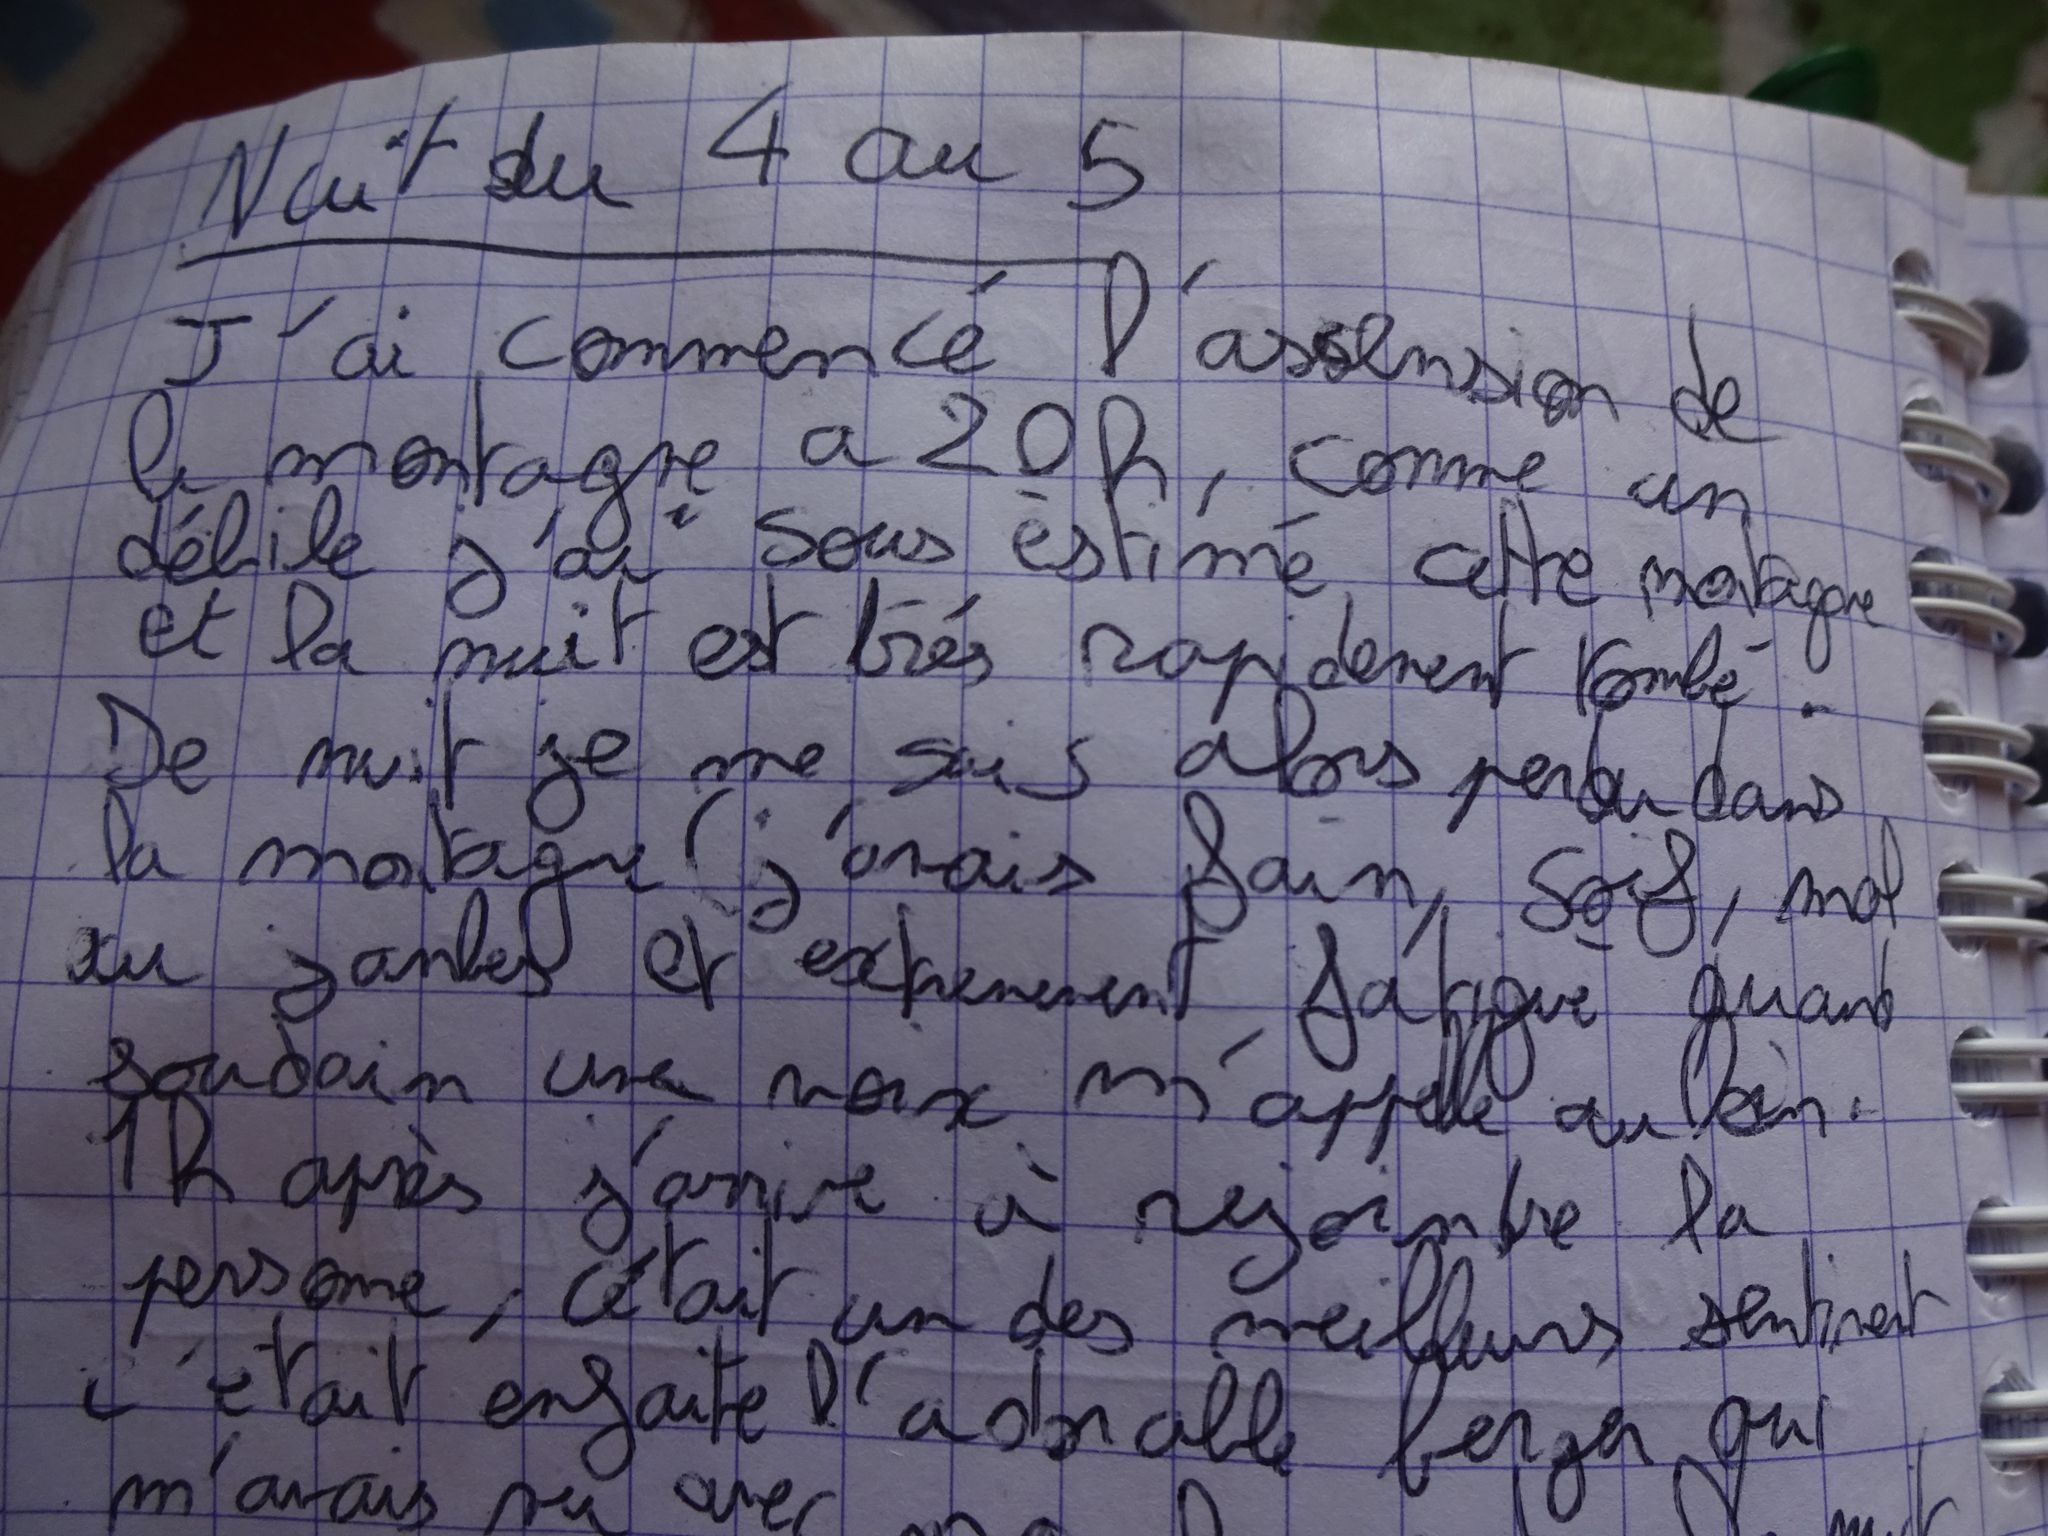 Nuit du 4 au 5
J'ai commencé l'assension de
la montagne a 20h, comme un
débile j'ai sous èstimé cette montagne
et la nuit est trés rapidement tombé.
De nuit je me suis alors perdu dans
la montagne (j'avais fain, soif, mal
au jambes et extremement fatigué quand
soudain une voix m'appelle au loin.
1h après j'arrive à rejoindre la
personne, c'était un des meilleurs sentiment
c'était enfaite l'adorable berger qui
m'avais vu avec ma